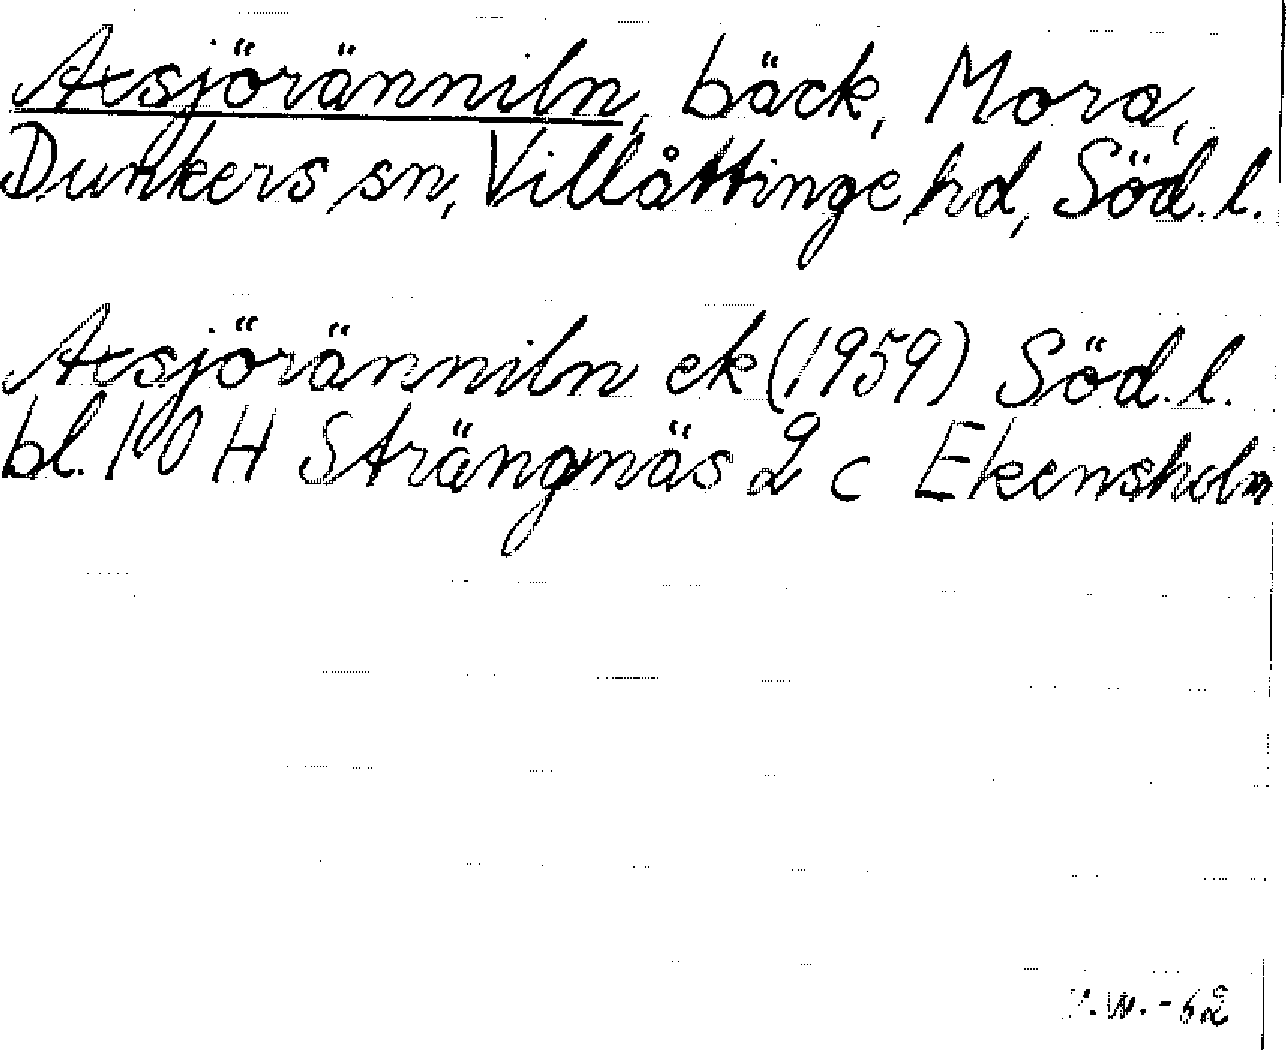 Axsjöränniln, bäck, Mora,
Dunkers sn, Villåttinge hd, Söd. l.
Axsjöränniln ek (1959) Söd. l.
bl. 10 H Strängnäs 2 c Ekensholm
-62